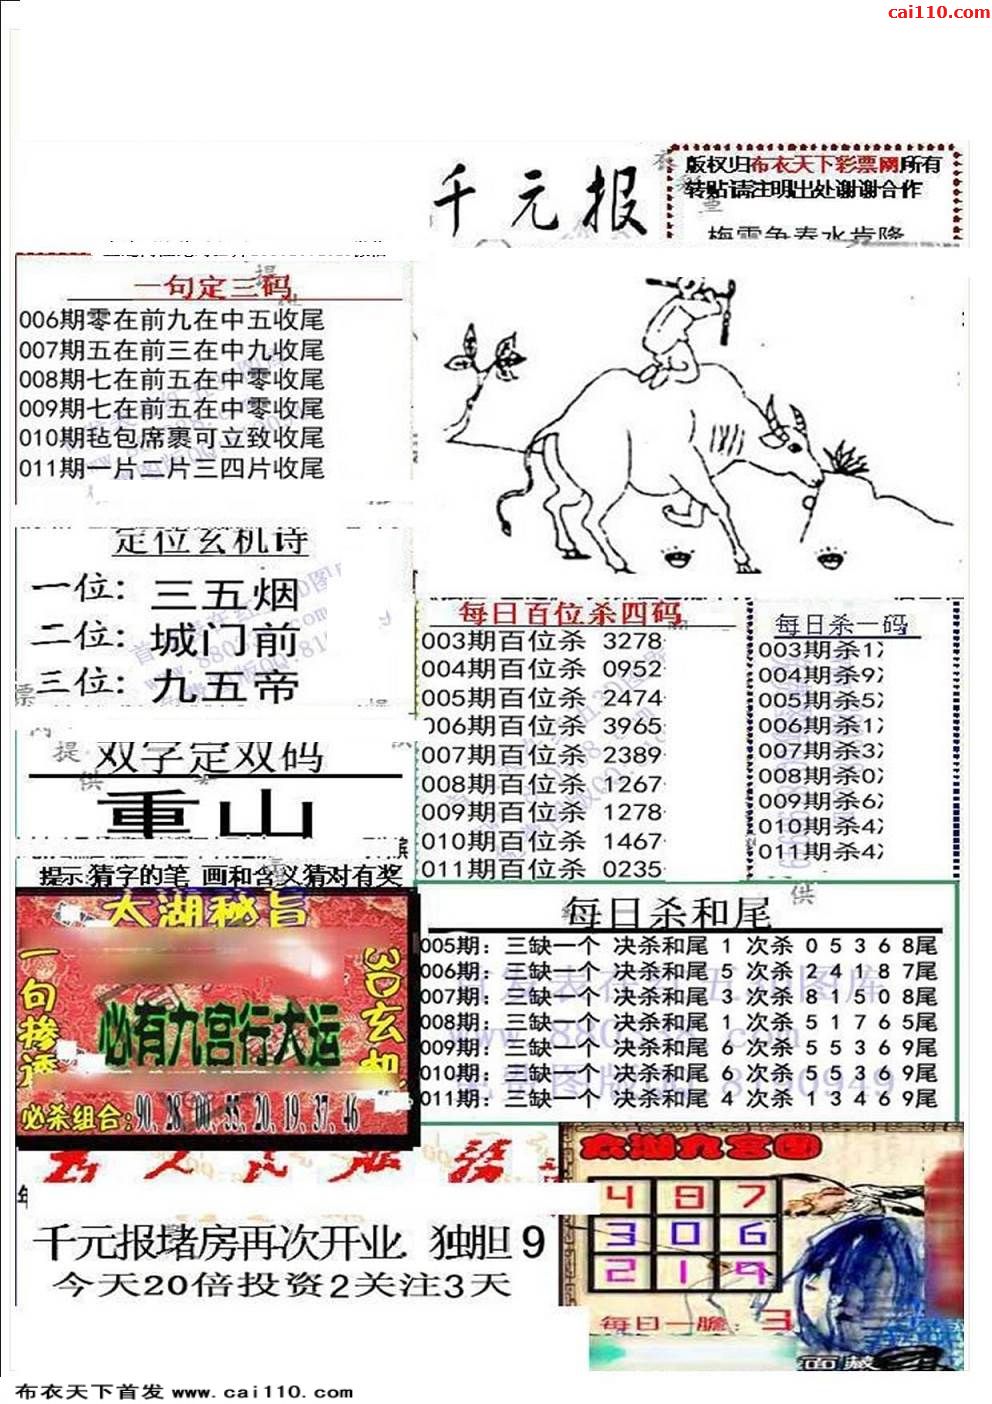 cai110.com
千元报
版权归布衣天下彩票网所有
转贴请注明出处谢谢合作
一句定三码
006期零在前九在中五收尾
007期五在前三在中九收尾
008期七在前五在中零收尾
009期七在前五在中零收尾
010期毡包席裹可立致收尾
011期一片二片三四片收尾
定位玄机诗
一位: 三五烟
二位: 城门前
三位: 九五帝
双字定双码
重山
提示:猜字的笔 画和含义猜对有奖
每日百位杀四码
003期百位杀 3278
004期百位杀 0952
005期百位杀 2474
006期百位杀 3965
007期百位杀 2389
008期百位杀 1267
009期百位杀 1278
010期百位杀 1467
011期百位杀 0235
每日杀一码
003期杀1
004期杀9
005期杀5
006期杀1
007期杀3
008期杀0
009期杀6
010期杀4
011期杀4
每日杀和尾
005期: 三缺一个 决杀和尾 1 次杀 0 5 3 6 8尾
006期: 三缺一个 决杀和尾 5 次杀 2 4 1 8 7尾
007期: 三缺一个 决杀和尾 3 次杀 8 1 5 0 8尾
008期: 三缺一个 决杀和尾 1 次杀 5 1 7 6 5尾
009期: 三缺一个 决杀和尾 6 次杀 5 5 3 6 9尾
010期: 三缺一个 决杀和尾 6 次杀 5 5 3 6 9尾
011期: 三缺一个 决杀和尾 4 次杀 1 3 4 6 9尾
太湖秘旨
一句掺透
3D玄机
必有九宫行大运
必杀组合:90,28,00,55,20,19,37,46
千元报堵房再次开业. 独胆 9
今天20倍投资2关注3天
太湖九宫图
4 8 7
3 0 6
2 1 9
每日一胆: 3
布衣天下首发 www.cai110.com